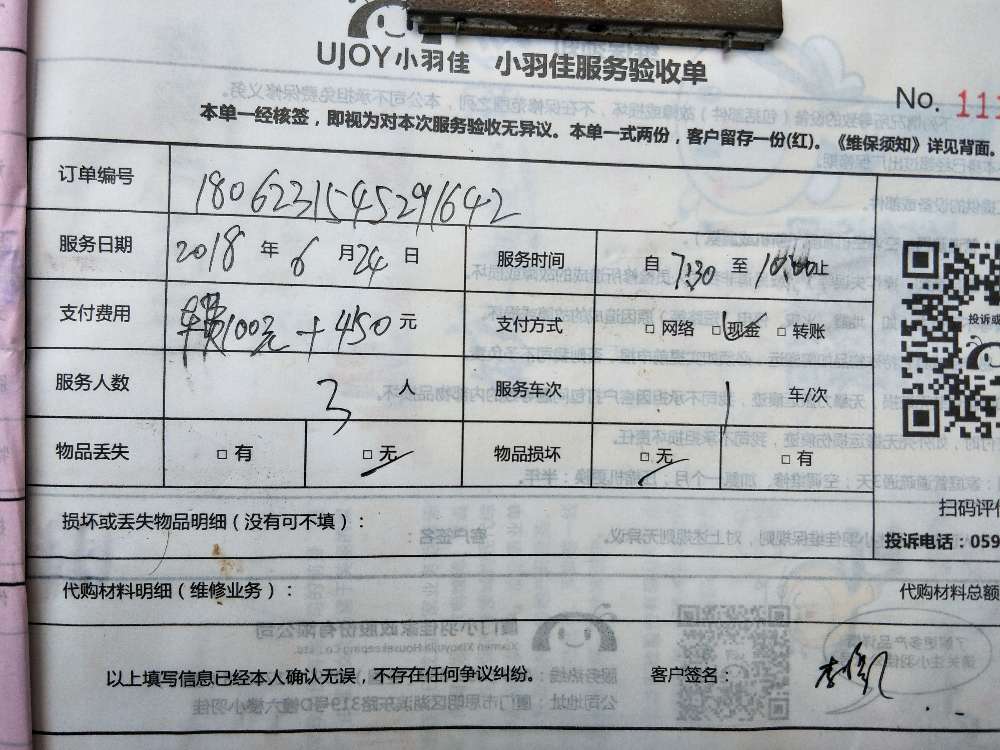 UJOY小羽佳 小羽佳服务验收单
No. 11
本单一经核签，即视为对本次服务验收无异议。本单一式两份，客户留存一份(红)。《维保须知》详见背面。
订单编号 1806231545291642
服务日期 2018 年 6 月 24 日 服务时间 自 7:30 至 止
支付费用 100元 + 450 元 支付方式 □ 网络 □ 现金 □ 转账
投诉或
服务人数 3 人 服务车次 1 车/次
物品丢失 □ 有 □ 无 物品损坏 □ 无 □ 有
扫码评价
损坏或丢失物品明细（没有可不填）：
投诉电话：059
代购材料明细（维修业务）： 代购材料总额
以上填写信息已经本人确认无误，不存在任何争议纠纷。 客户签名：